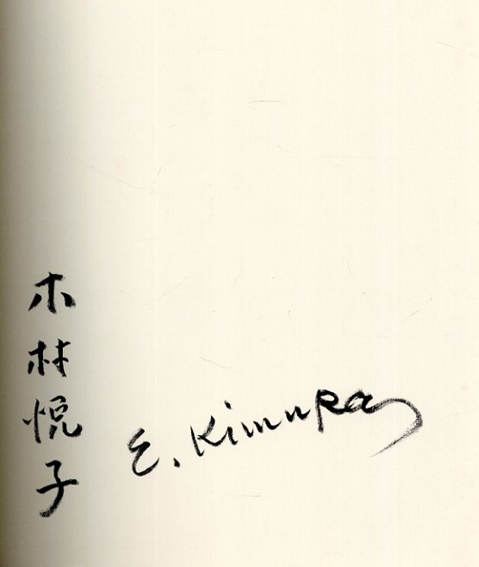 木村悦子
E. Kimura